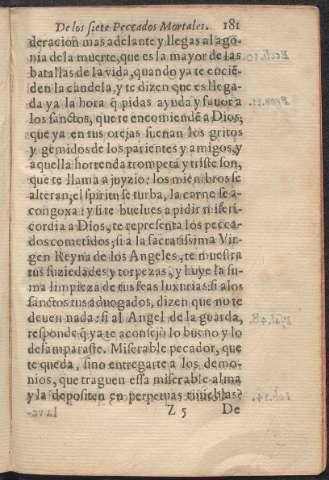 De los siete Peccados Mortales. 181
deracion mas adelante y llegas al ago-
nia de la muerte, que es la mayor de las
batallas de la vida, quando ya te encié-
den la candela, y te dizen que es llega-
da ya la hora q̃ pidas ayuda y fauor a
los sanctos, que te encomiendẽ a Dios;
que ya en tus orejas suenan los gritos
y gemidos de los parientes y amigos, y
aquella horrenda trompeta y triste son,
que te llama a juyzio: los miẽbros se
alteran, el spiritu se turba, la carne se a-
congoxa: y si te buelues a pidir miseri-
cordia a Dios, te representa los pecca-
dos cometidos; si a la sacratissima Vir-
gen Reyna de los Angeles, te muestra
tus suziedades y torpezas, y huye la su-
ma limpieza de tus feas luxurias: si a los
sanctos tus aduogados, dizen que no te
deuen nada: si al Angel de la guarda,
responde q̃ ya te acõsejò lo bueno y lo
desamparaste. Miserable pecador, que
te queda, sino entregarte a los demo-
nios, que traguen essa miserable alma
y la depositen en perpetuas tinieblas?
Z 5 De